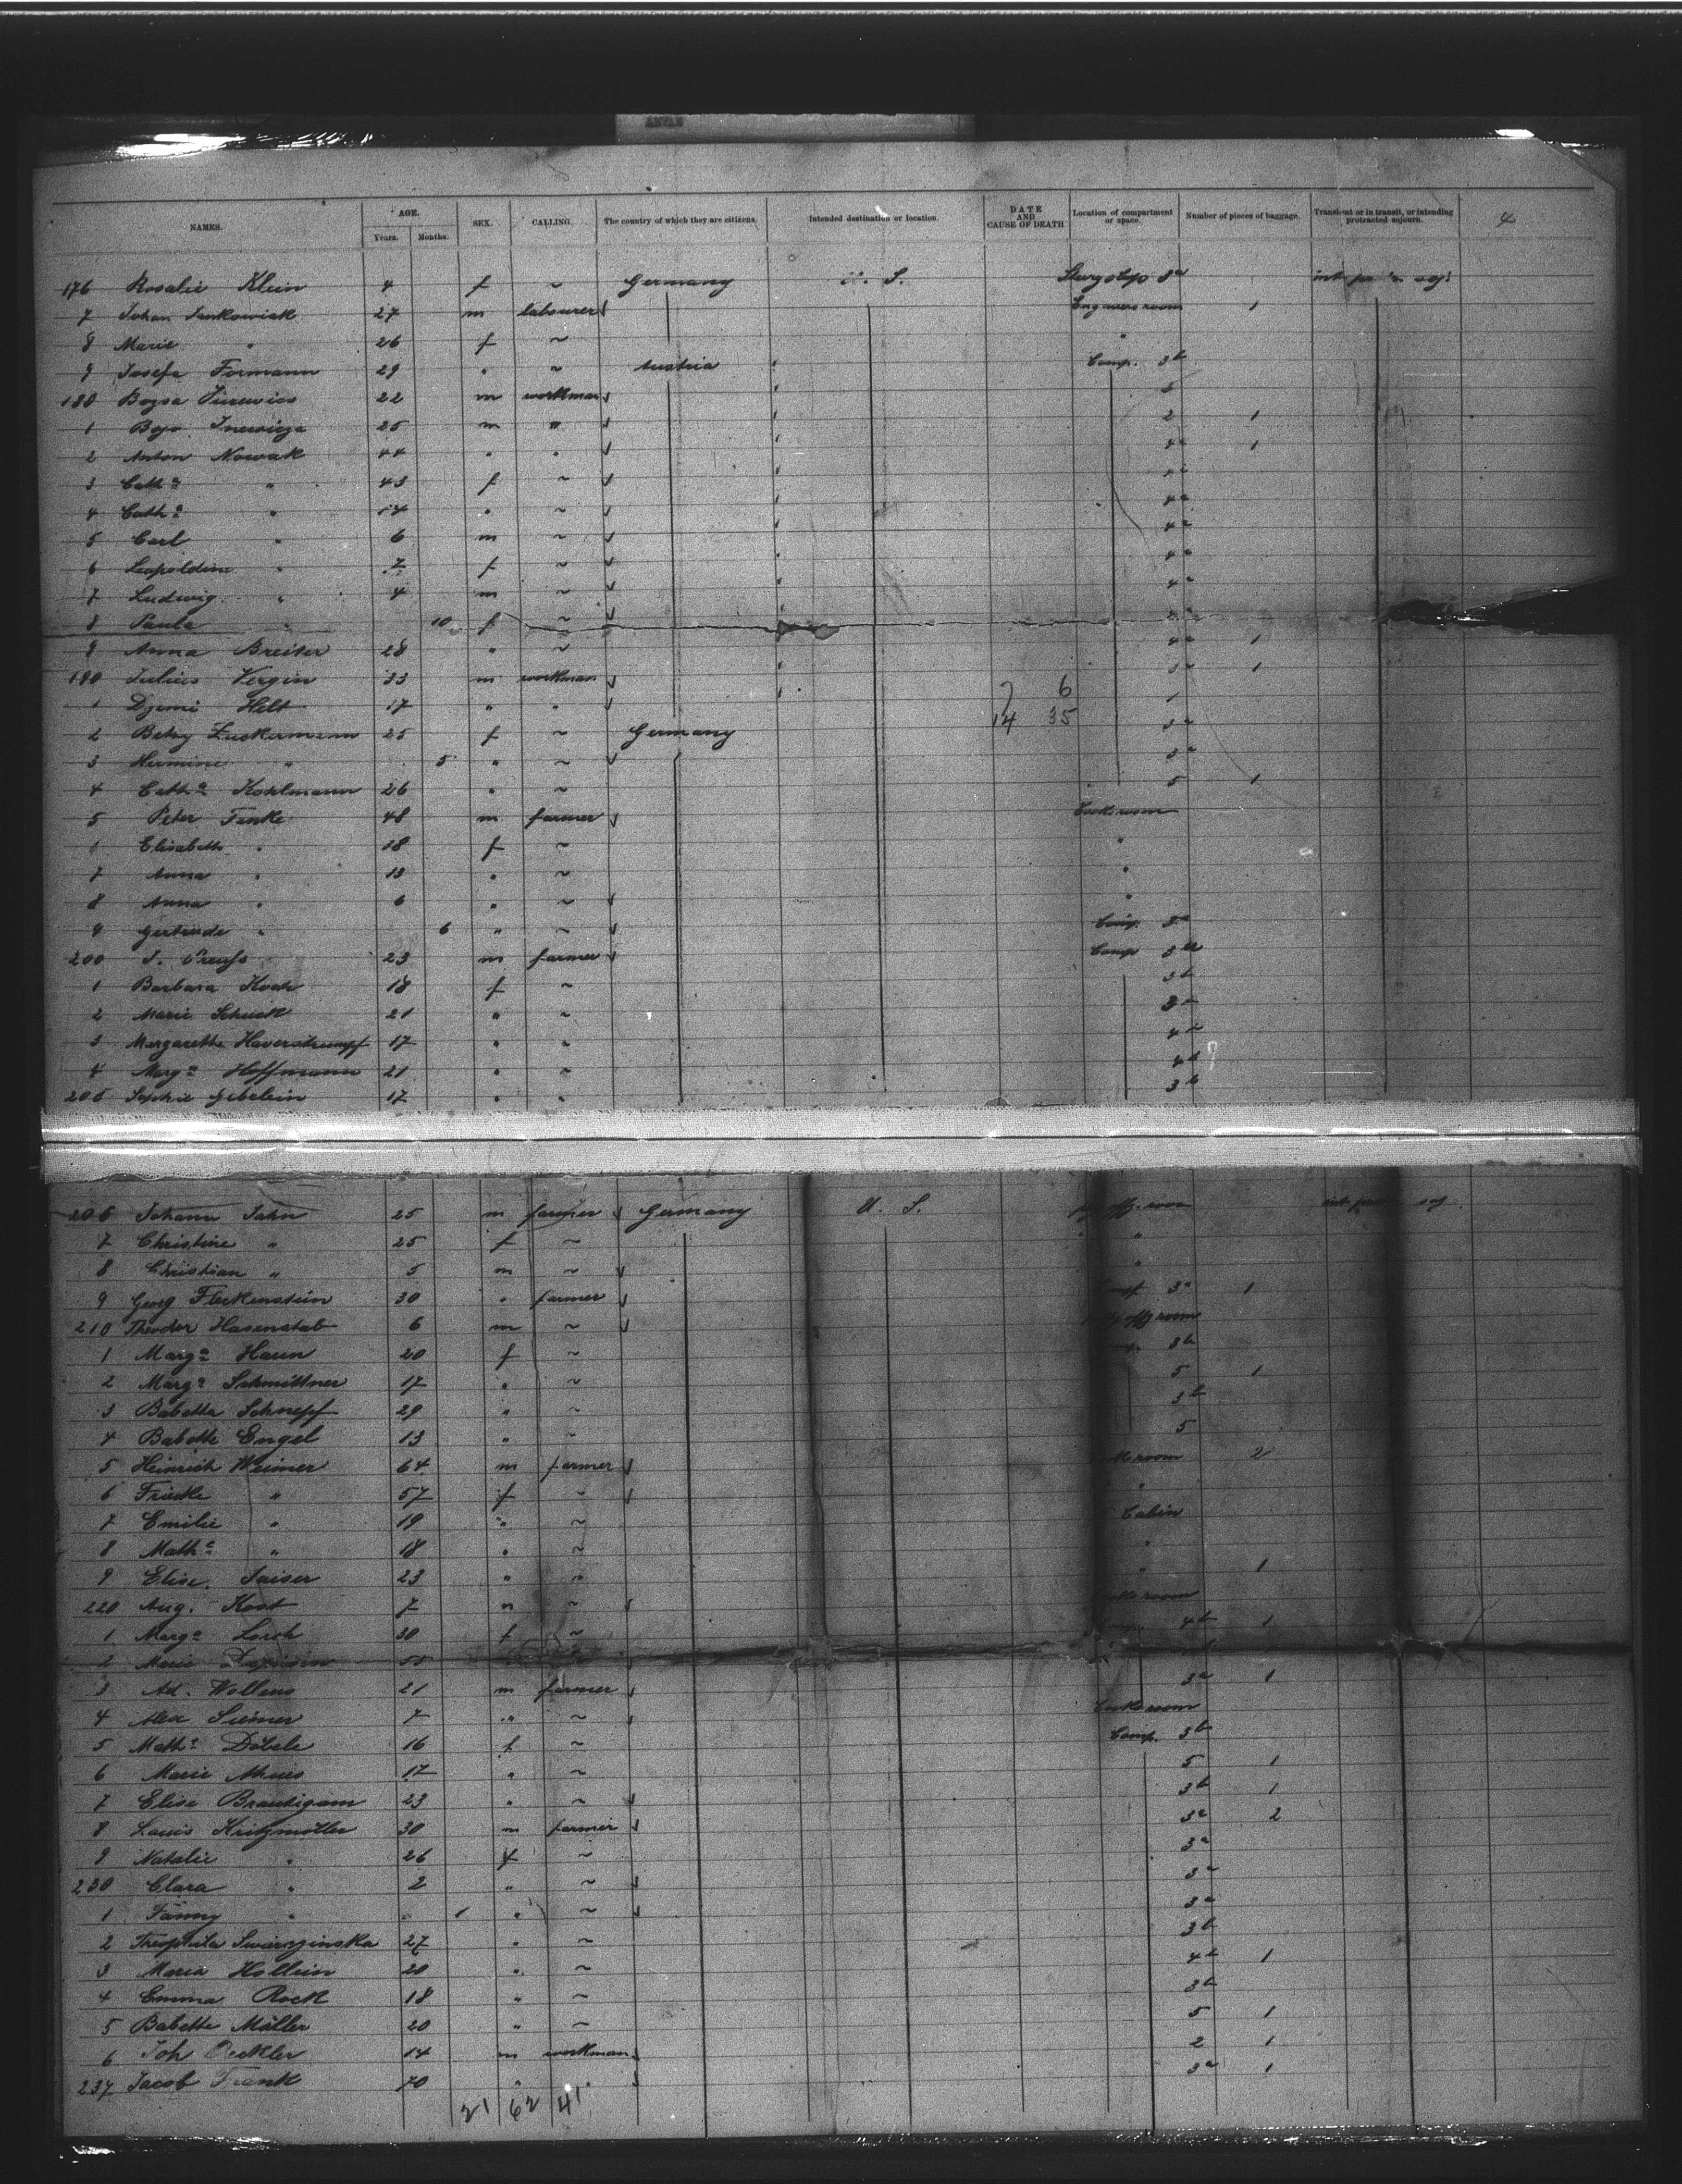 4
NAMES. AGE. Years. Months. SEX. CALLING. The country of which they are citizens. Intended destination or location. DATE AND CAUSE OF DEATH Location of compartment or space. Number of pieces of baggage. Transient or in transit, or intending protracted sojourn.
176 Rosalie Klein 4 f ~ Germany U. S.
7 Johan Jankowiak 27 m labourer Engineers room 1
8 Marie " 26 f ~ "
9 Josefa Formann 29 " ~ Austria Comp. 3b
180 22 m workman
1 25 m " 2 1
2 Anton Nowak 44 " " 4a 1
3 Catha " 43 f ~ 4a
4 Catha " 14 " ~ 4a
5 Carl " 6 m ~ 4a
6 Leopoldine " 7 f ~ 4a
7 Ludwig " 4 m ~ 4a
8 Paula " 10 f ~
9 Anna Breiter 28 " ~ 4a 1
190 Julius Vergin 33 m workman 1
1 Helt 17 " " 1
7 6
14 35
2 Betsy Zuckermann 25 f ~ Germany 3a
3 Hermine " 5 " ~ 3a
4 Catha Kohlmann 26 " ~ 5 1
5 Peter Finke 48 m farmer Cooks room
6 Elisabeth " 38 f ~ "
7 Anna " 13 " ~ "
8 Anna " 6 " ~ "
9 Gertrude " 6 " ~ Comp.
200 J. Preuss 23 m farmer Comp
1 Barbara Koch 18 f ~ 3b
2 Marie Schick 21 " ~
3 Margarethe Haverstrumpf 17 " ~ 4a
4 Marga Hoffmann 21 " ~ 4b
205 Sophie Gebelein 17 " " 3b
206 Johann Jahn 25 m farmer Germany U. S. room
7 Christine " 25 f ~ "
8 Christian " 5 m ~ "
9 Georg Fleckenstein 30 " farmer 3a 1
210 Theodor Hasenstab 6 m ~ room
1 Marga Haun 20 f ~ 3b
2 Marga Schmittner 17 " ~ 5 1
3 Babetta Schnepf 29 " ~ 3b
4 Babette Engel 13 " ~ 5
5 Heinrich Weimer 64 m farmer room 2
6 Fricke " 57 f ~ "
7 Emilie " 19 " ~ Cabin
8 Matha " 18 " ~ "
9 Elise Saiser 23 " ~ " 1
220 Aug. Kost 7 m ~ room
1 Marga Lorch 30 f ~ 4b 1
2 Marie 55
3 Ad. Wollens 21 m farmer 3a 1
4 Alex Siemer 7 " ~ Cooks room
5 Matha Döbele 16 f ~ Comp. 3b
6 Marie 17 " ~ 5 1
7 Elise Brautigam 23 " ~ 3b 1
8 Louis Kritzmöller 30 m farmer 3a 2
9 Natalie " 26 f ~ 3a
230 Clara " 2 " ~ 3a
1 Fanny " 1 " ~ 3a
2 27 " ~ 3b
3 Maria Hollein 20 " ~ 4b 1
4 Emma Rock 18 " ~ 3b
5 Babette Müller 20 " ~ 5 1
6 Joh Deckler 14 m workman 2 1
237 Jacob Frank 70 " " 3a 1
21 62 41